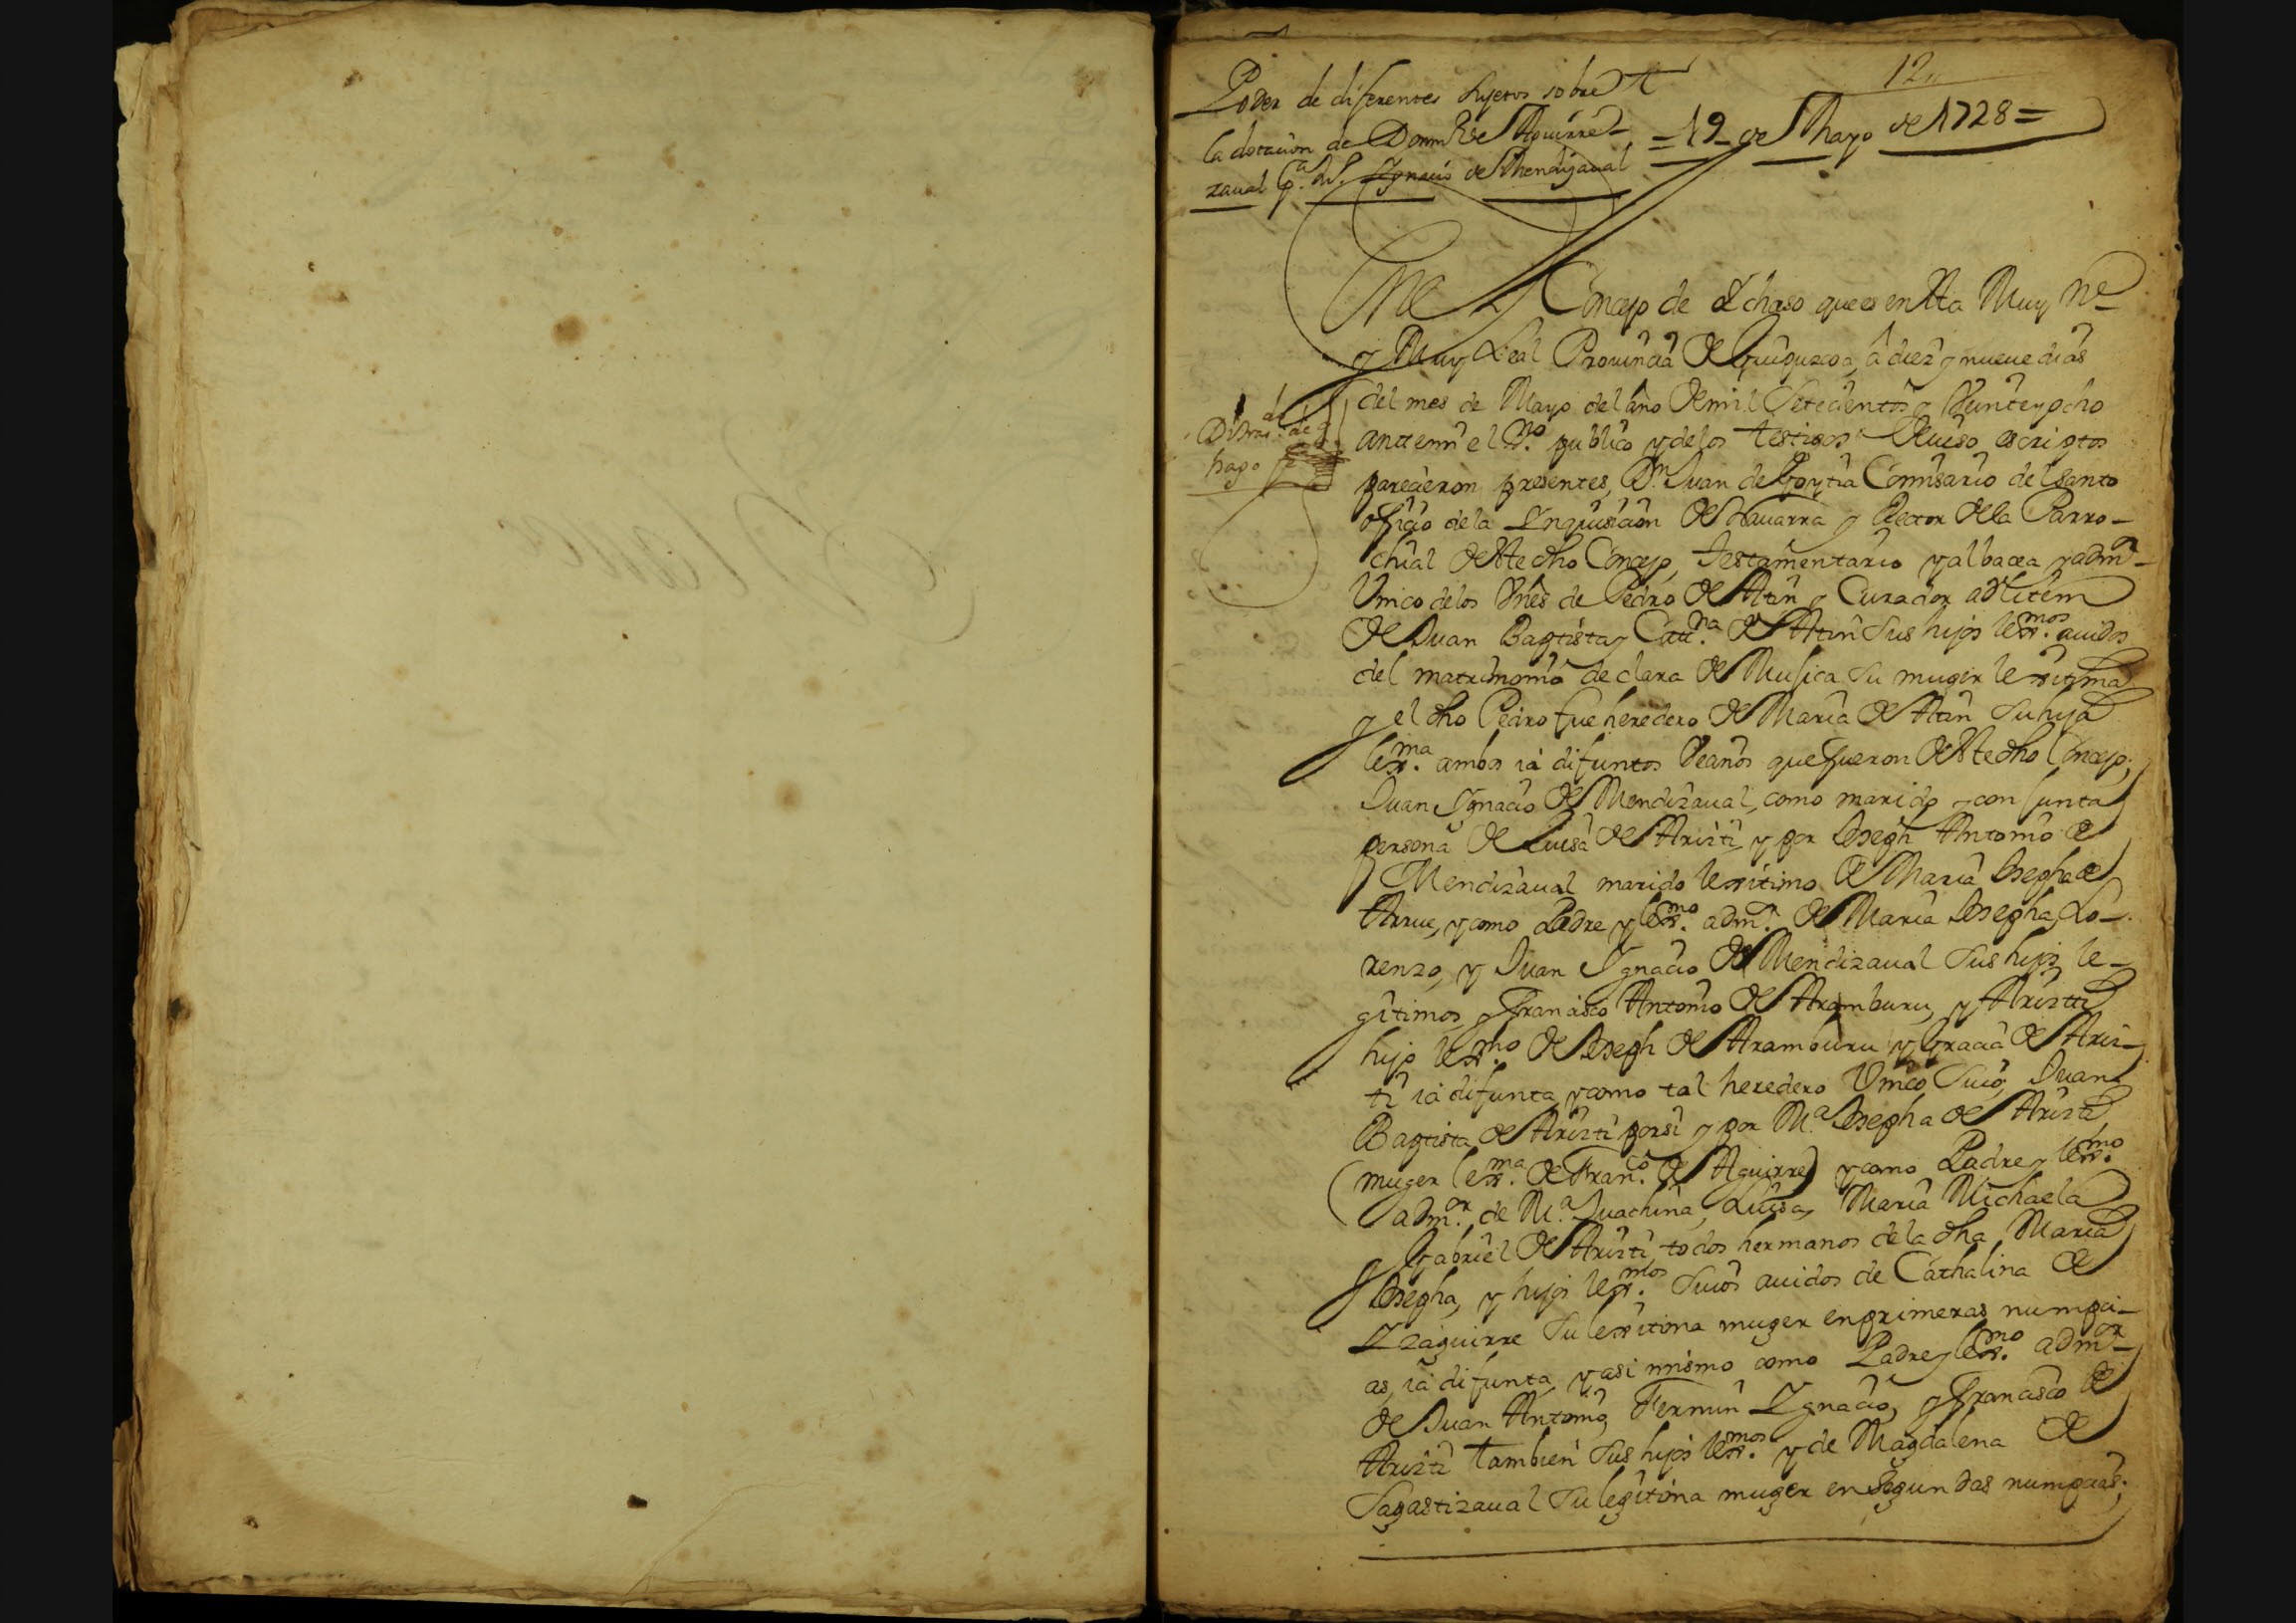 12
Poder de diferentes sujetos sobre
la dotacion de Domin^s de Aguirre-
zaual p^a. Ju^o. Ygnacio de Mendizaual
= 19 de Mayo de 1728 =
En el Concejo de Ychaso que es en esta Muy N^e
y Muy Leal Prouincia de Guipuzcoa, â diez y nueue dias
del mes de Mayo del año de mil Setecientos y Veinte y ocho
antemi el S^no. publico y delos testigos de iuso escriptos
parecieron presentes, D^n. Juan de Goytia Comisario del santo
oficio dela Ynquisicion de Nauarra y Rector de la Parro-
chial de este dho Concejo, testamentario y albacea y adm^or
Vnico delos Vnês de Pedro de Atin y Curador adlitem
de Juan Baptista y Catt^na. de Atin sus hijos lexx^mos. auidos
del matrimonio de clara de Musica su muger lexxitima
y el dho Pedro fue heredero de Maria de Atin su hija
lexx^ma. ambos ia difuntos Vecinos que fueron de este dho Concejo;
Juan Ygnacio de Mendizaual, como marido y conjunta
persona de Luisa de Aristi, y por Joseph Antonio de
Mendizaual marido lexxitimo de Maria Josepha de
Arrue, y como Padre y lexx^mo. adm^or. de Maria Josepha, Lo-
renzo, y Juan Ygnacio de Mendizaual sus hijos le-
gitimos, y Francisco Antonio de Aramburu, y Aristi
hijo lexx^mo. de Joseph de Aramburu y Gracia de Aris-
ti ia difunta, y como tal heredero Vnico Suio, Juan
Baptista de Aristi por si y por M^a. Josepha de Aristi
(muger lexx^ma. de Fran^co. de Aguirre) y como Padre y lexx^mo.
adm^or. de M^a. Juachina, Luisa, Maria Michaela
y Gabriel de Aristi, todos hermanos dela dha Maria
Josepha, y hijos lexx^mos. Suios auidos de Cathalina de
Yzaguirre Su lexxitima muger en primeras numpci-
as, ia difunta, y asi mismo como Padre y lexx^mo. adm^or
de Juan Antonio, Fermin Ygnacio, y Francisco de
Aristi tambien Sus hijos lexx^mos. y de Magdalena de
Sagastizaual Su legitima muger en Segundas numpcias;